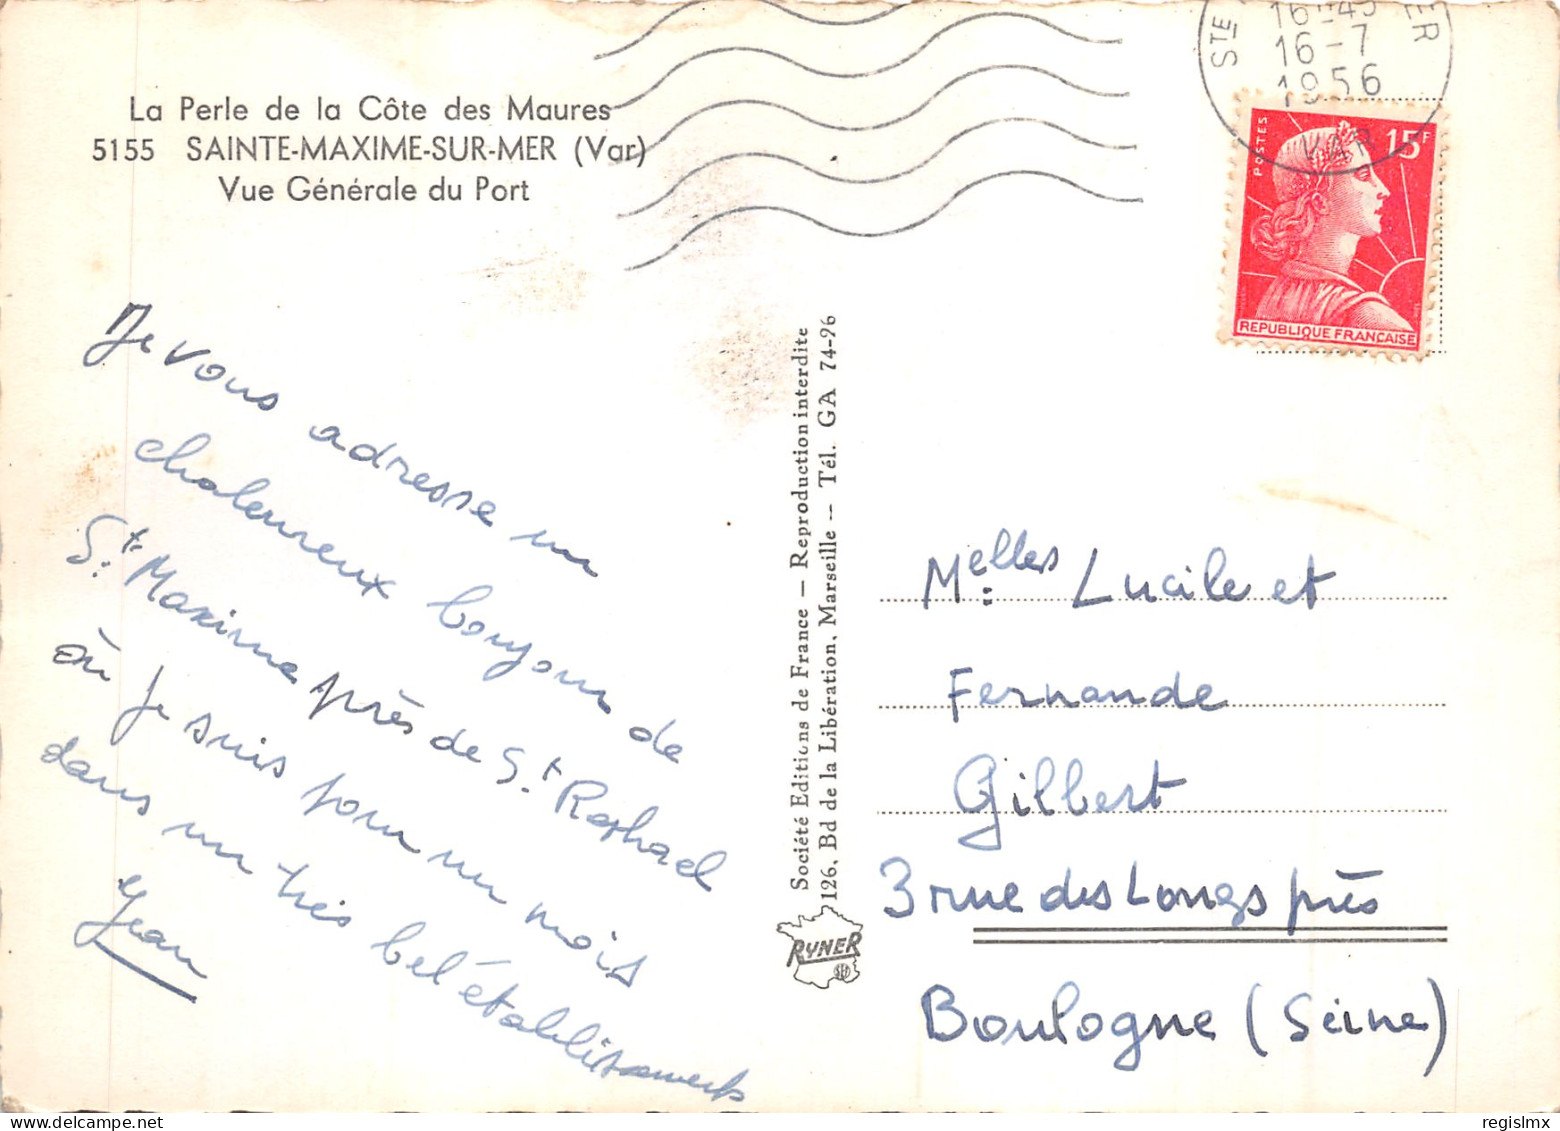 La Perle de la Côte des Maures
5155 SAINTE-MAXIME-SUR-MER (Var)
Vue Générale du Port
Je vous adresse un
chaleureux bonjour de
Ste Maxime près de St Raphael
où je suis pour un mois
dans un très bel établissement
Jean
Société Editions de France — Reproduction interdite
126, Bd de la Libération, Marseille -- Tél. GA 74-96
RYNER
STE
ER
16H45
16-7
1956
VAR
POSTES
15F
REPUBLIQUE FRANÇAISE
Melles Lucile et
Fernande
Gilbert
3 rue des Longs prés
Boulogne (Seine)
regislmx